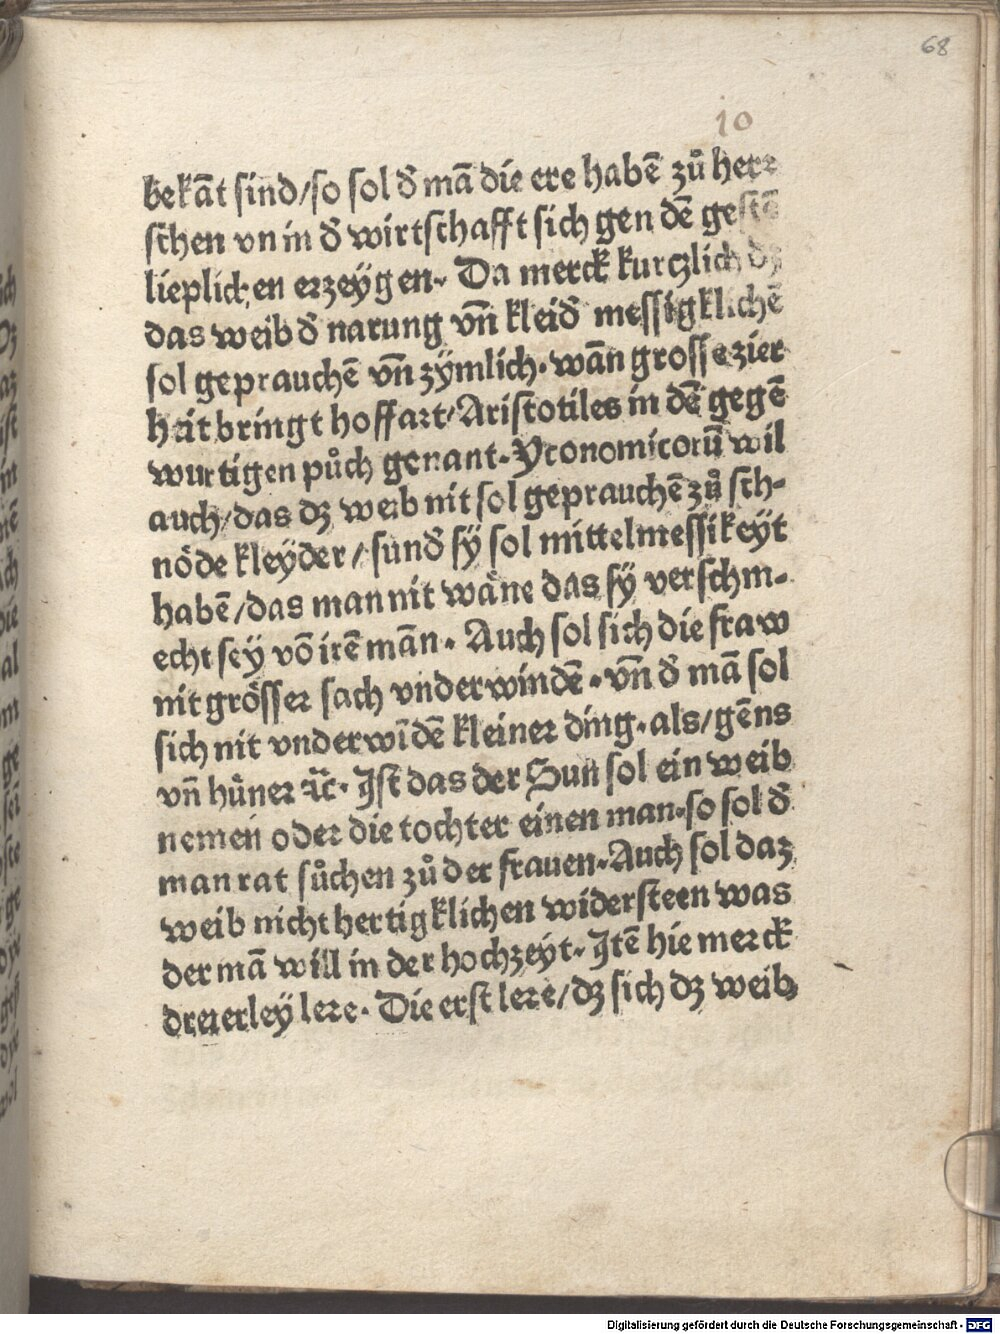 68
10
bekāt sind/so sol d̄ mā die ere habē zů herr
schen vn in d̄ wirtschafft sich gen dē gestā
lieplichen erzeÿgen. Da merck kurczlich dz
das weib d̄ narung vn̄ kleid̄ messigklichē
sol geprauchē vn̄ zÿmlich. wān grosse zier
heit bringt hoffart/Aristotiles in dē gegē
wurtigen půch genant. Yconomicorū wil
auch/das dz weib nit sol geprauchē zů sch-
nöde kleÿder/sund̄ sÿ sol mittelmessikeÿt
habē/das man nit wäne das sÿ verschm-
echt seÿ vō irē mān. Auch sol sich die fraw
nit grösser sach vnderwindē. vn̄ d̄ mā sol
sich nit vnderwīdē kleiner ding. als/gēns
vn̄ hüner ꝛc̄. Ist das der Sun sol ein weib
nemen oder die tochter einen man. so sol d̄
man rat sůchen zů der frauen. Auch sol daz
weib nicht hertigklichen widersteen was
der mā will in der hochzeyt. Itē hie merck
dreierleÿ lere. Die erst lere/dz sich dz weib
Digitalisierung gefördert durch die Deutsche Forschungsgemeinschaft - DFG